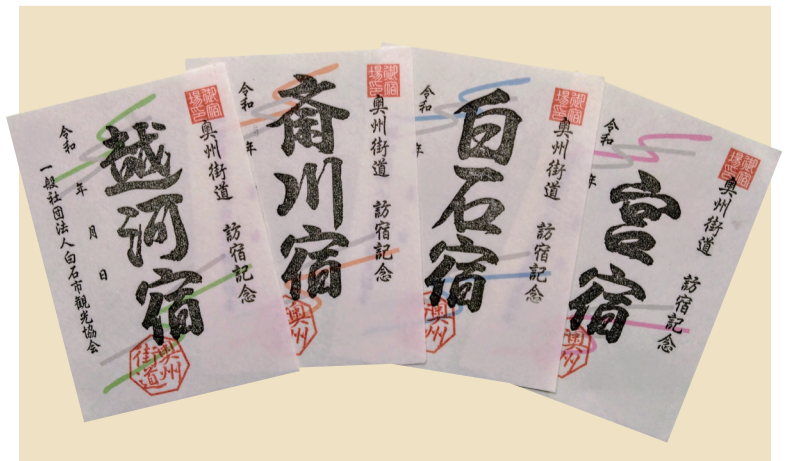 御宿場印
奥州街道 訪宿記念
越河宿
奥州街道
令和 年 月 日
一般社団法人白石市観光協会
御宿場印
奥州街道 訪宿記念
斎川宿
奥州
令和 年
御宿場印
奥州街道 訪宿記念
白石宿
奥州
令和 年
御宿場印
奥州街道 訪宿記念
宮宿
奥州
令和 年